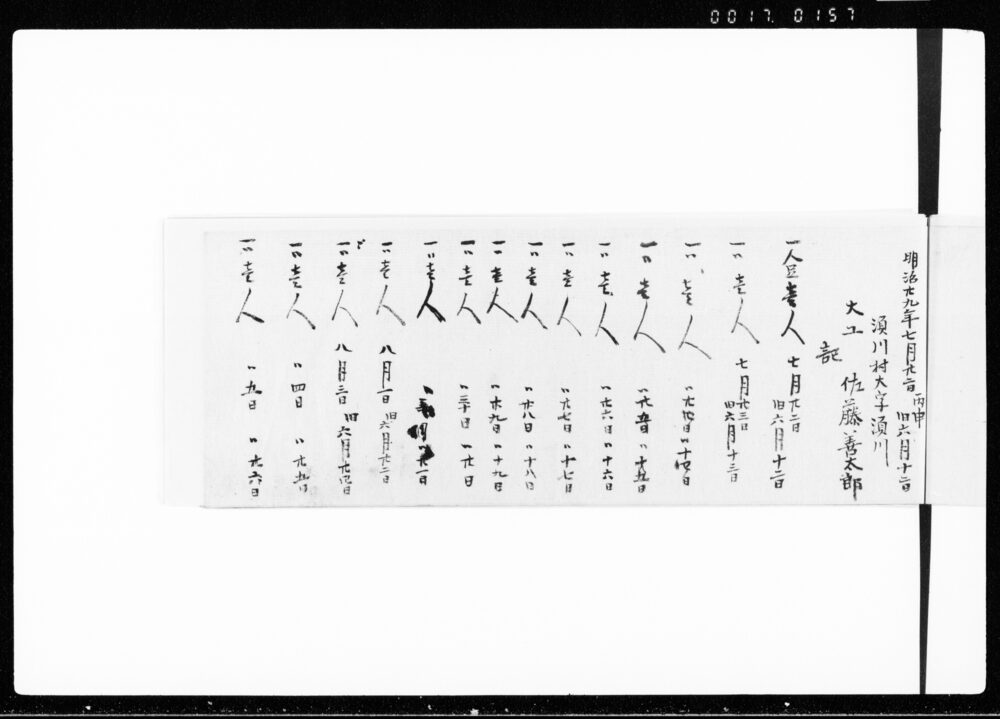 0017 0157
明治廿九年七月廿二日 丙申
旧六月十二日
須川村大字須川
大工 佐藤善太郎
記
一人足壱人 七月廿二日 旧六月十二日
一〃壱人 七月廿三日 旧六月十三日
一〃壱人 〃廿四日 〃十四日
一〃壱人 〃廿五日 〃十五日
一〃壱人 〃廿六日 〃十六日
一〃壱人 〃廿七日 〃十七日
一〃壱人 〃廿八日 〃十八日
一〃壱人 〃廿九日 〃十九日
一〃壱人 〃三十日 〃廿日
一〃壱人 〃廿一日
一〃壱人 八月一日 旧六月廿二日
一〃壱人 八月三日 旧六月廿四日
一〃壱人 〃四日 〃廿五日
一〃壱人 〃五日 〃廿六日